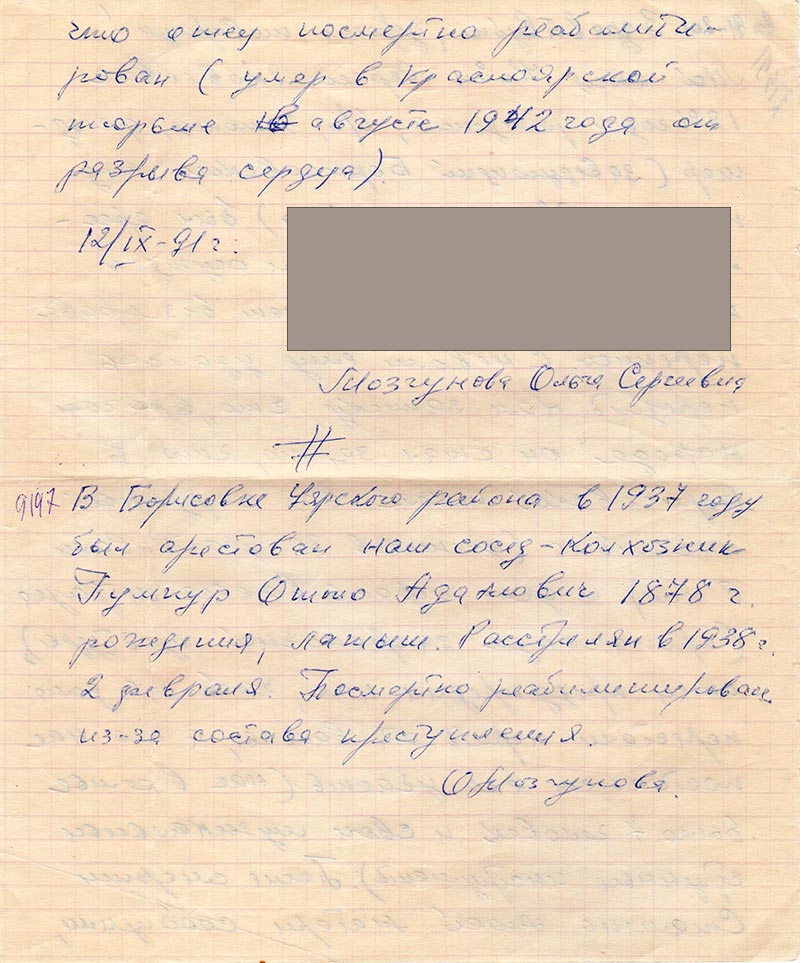 что отец посмертно реабилити-
рован (умер в Красноярской
тюрьме в августе 1942 года от
разрыва сердца).
12/IX-91 г.
Мозгунова Ольга Сергеевна
9197 В Борисовке Уярского района в 1937 году
был арестован наш сосед-колхозник
Пумпур Отто Адамович 1878 г.
рождения, латыш. Расстрелян в 1938 г.
2 февраля. Посмертно реабилитирован
из-за состава преступления.
О Мозгунова.